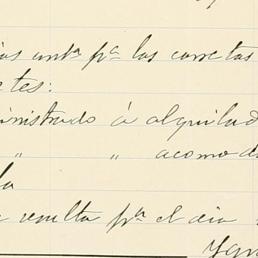 ias antª pª las carretas
tes:
ministrado á alquilad
" " acomod
la
resulta pª el dia
Ygn